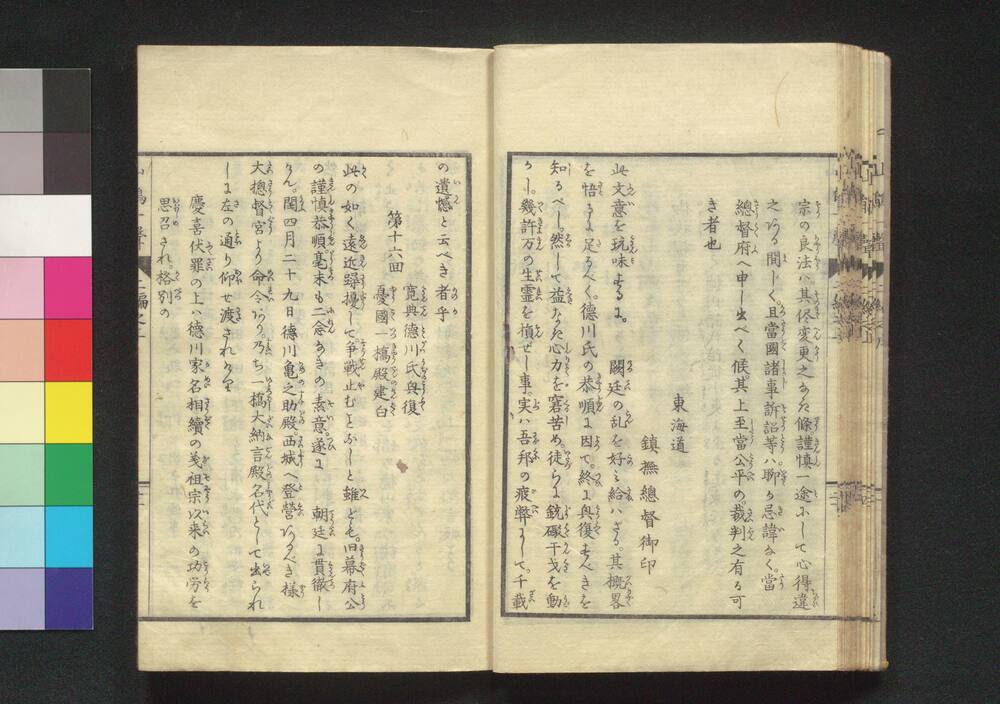 宗の良法ハ其侭変更之なき條謹慎一途にして心得違
之なき間しく。且當國諸事訴訟等ハ聊か忌諱なく。當
總督府へ申し出べく候。其上至當公平の。裁判之有る可
き者也
東海道
鎮撫總督御印
此文意を玩味するに。闕廷の乱を好ミ給ハざる。其概畧
を悟るに足るべく。德川氏の恭順に因て。終に興復すべきを
知るべし。然して益なき心力を窘苦め。徒らに銃礮干戈を動
かし。幾許万の生霊を損せし事。実ハ吾邦の疲弊にして。千載
の遺憾と云べき者乎
第十六回
寛典德川氏興復
憂國一橋殿建白
此の如く遠近蹂擾して。争戦止むときなしと雖ども。旧幕府公
の謹慎恭順。毫末も二念なきの素意遂に 朝廷に貫徹し
けん。閏四月二十九日德川亀之助殿西城へ登營あるべき様
大總督宮より命令あり。乃ち一橋大納言殿名代として出られ
しに左の通り仰せ渡されけり
慶喜伏罪の上ハ德川家名相續の義祖宗以来の功労を
思召され格別の